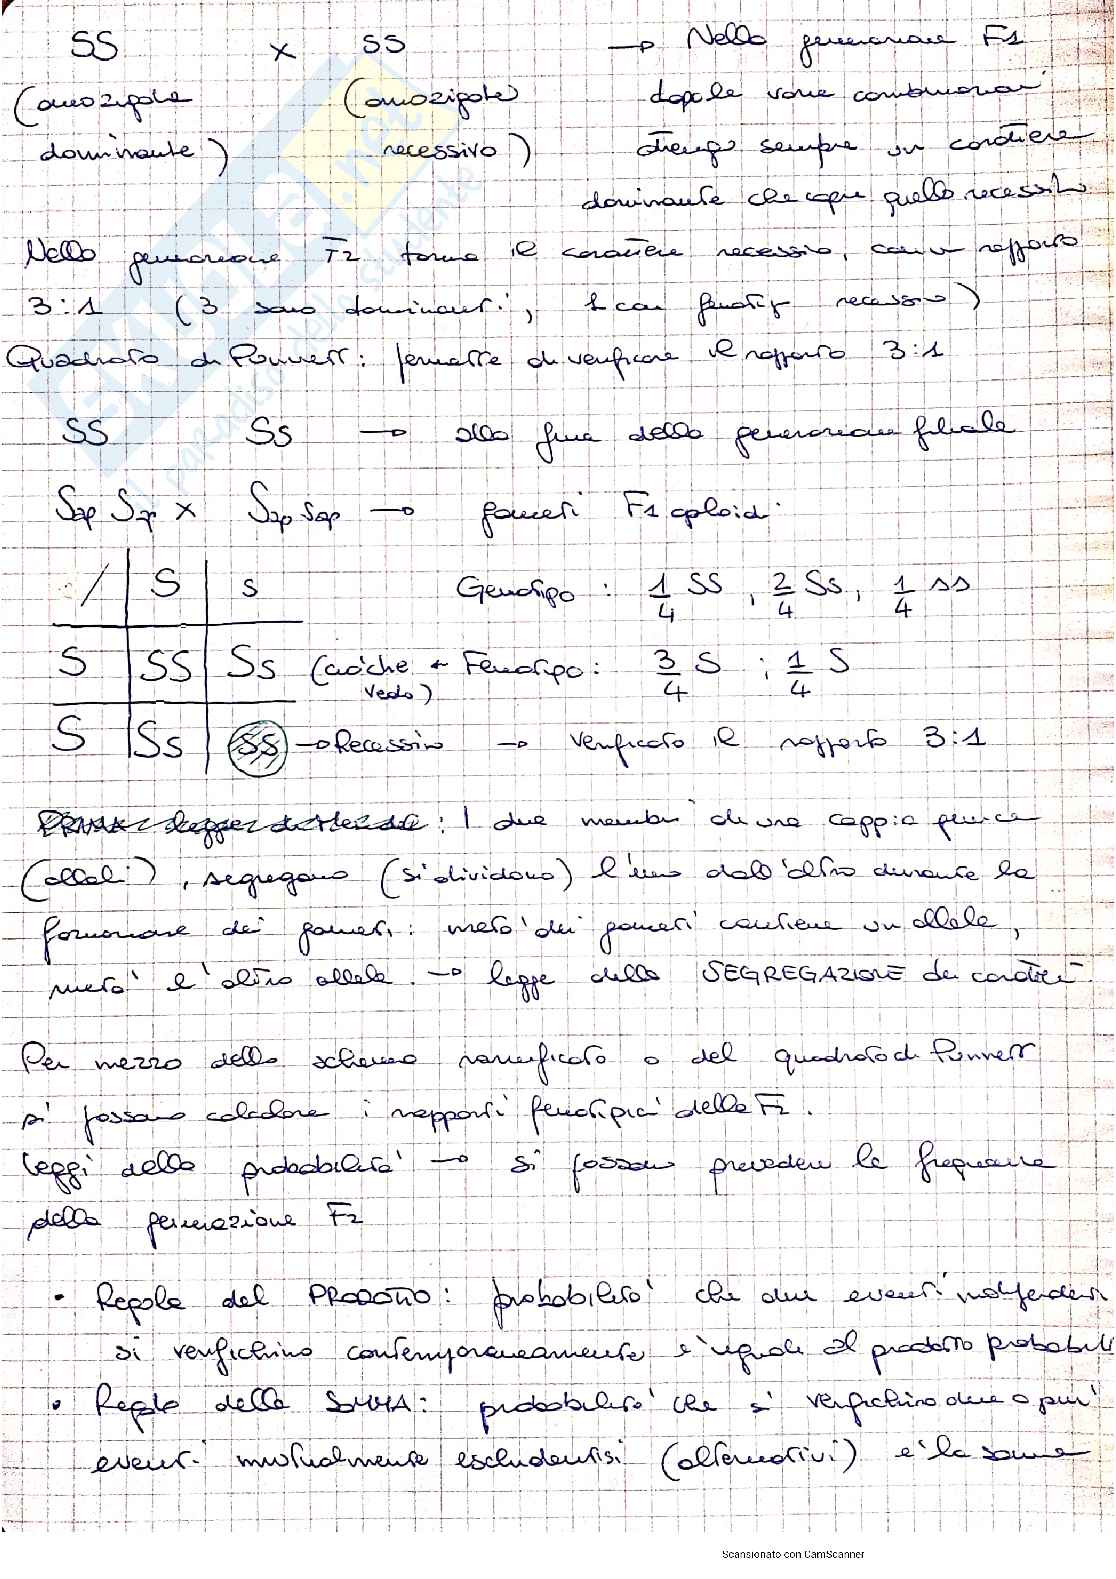 SS x ss → Nella generazione F1
(omozigote (omozigote dopo le varie combinazioni
dominante) recessivo) ottengo sempre un carattere
dominante che copre quello recessivo
Nella generazione F2 torna il carattere recessivo, con un rapporto
3:1 (3 sono dominanti, 1 con fenotip recessivo)
Quadrato di Punnett: permette di verificare il rapporto 3:1
SS Ss → alla fine della generazione filiale
→ gameti F1 aploidi
/ S s Genotipo: 1/4 SS, 2/4 Ss, 1/4 ss
S SS Ss (ciò che Fenotipo: 3/4 S; 1/4 S
vedo)
S Ss ss → Recessivo → verificato il rapporto 3:1
: I due membri di una coppia genica
(alleli), segregano (si dividono) l'uno dall'altro durante la
formazione dei gameti: metà dei gameti contiene un allele,
metà l'altro allele. → legge della SEGREGAZIONE dei caratteri.
Per mezzo dello schema ramificato o del quadrato di Punnett
si possono calcolare i rapporti fenotipici della F2.
Leggi della probabilità → si possono prevedere le frequenze
della generazione F2
• Regola del PRODOTTO: probabilità che due eventi indipendenti
si verifichino contemporaneamente è uguale al prodotto probabili
• Regola della SOMMA: probabilità che si verifichino due o più
eventi mutualmente escludentisi (alternativi) è la somma
Scansionato con CamScanner